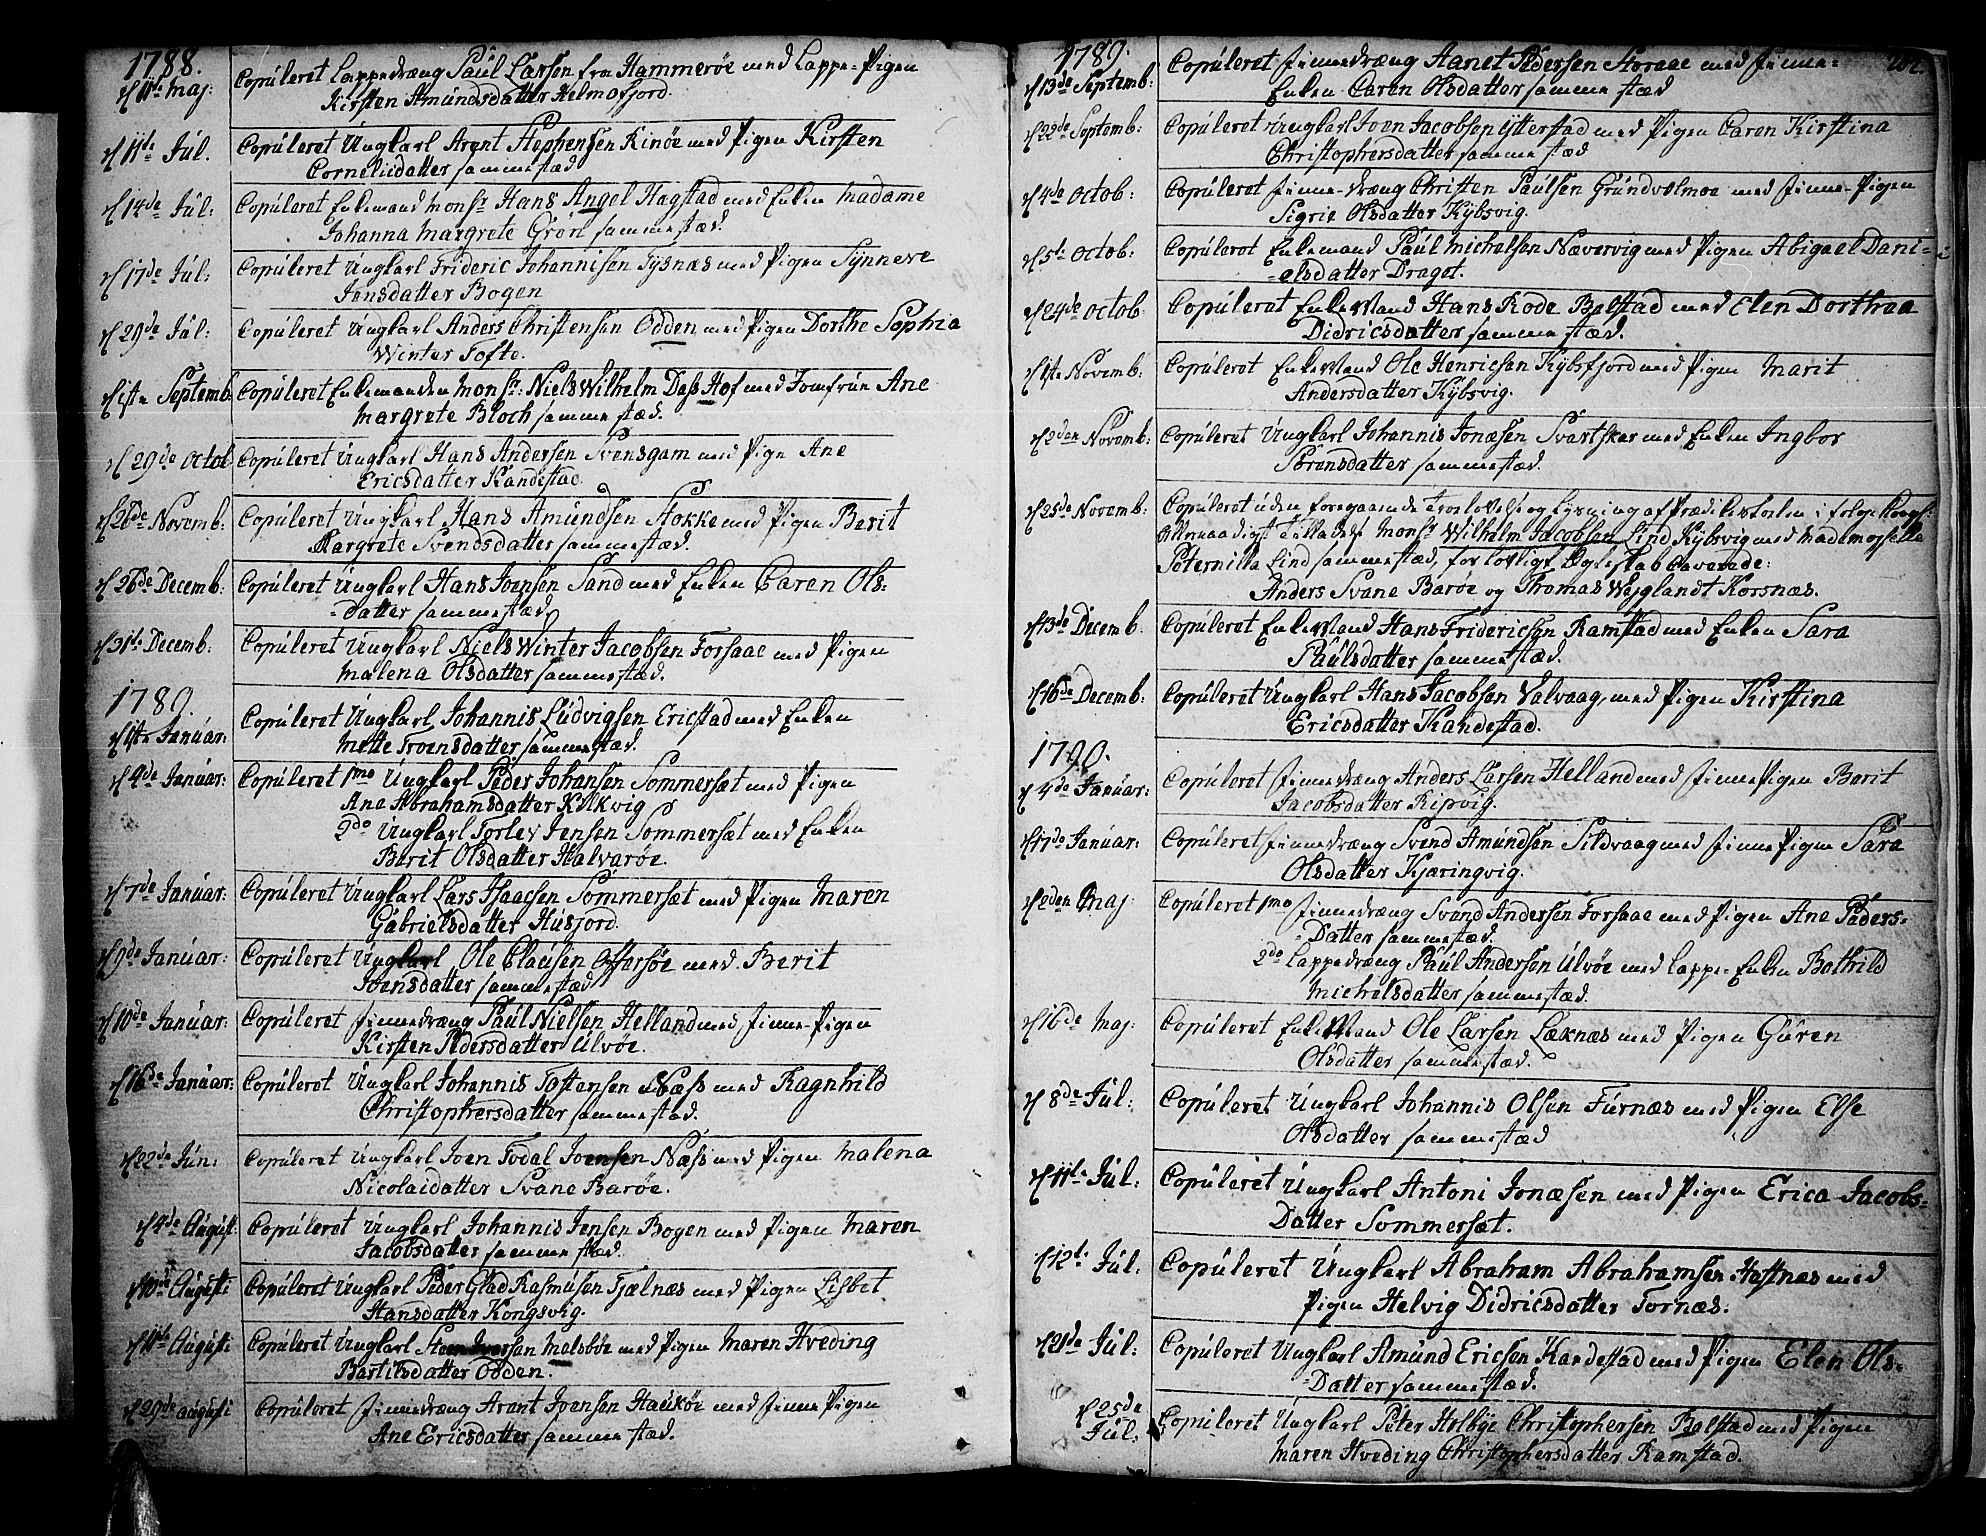 1788.
d 11te Maj: Copúleret Lappedræng Paúl Larsen fra Hammerøe med Lappe-Pigen
Kirsten Amúndsdatter Helmofjord.
d 11te Júl. Copúleret Úngkarl Arent Stephensen Rinøe med Pigen Kirsten
Corneliidatter sammestæd
d 14de Júl: Copúleret Enkemand Monsr Hans Angel Hagstad med Enken Madame
Johanna Margrete Grøn sammestæd.
d 17de Júl: Copúleret Úngkarl Frideric Johannisen Tysnæs med Pigen Synneve
Jensdatter Bogen
d 29de Júl: Copúleret Úngkarl Anders Christensen Odden med Pigen Dorthe Sophia
Winter Tofte.
d 1ste Septemb: Copúleret Enkemanden Monsr: Niels Wilhelm Dass Hof med Jomfrúe Ane
Margrete Bloch sammestæd.
d 29de Octob Copúleret Úngkarl Hans Andersen Svensgam med Pige Ane
Ericsdatter Kandestad.
d 26de Novemb: Copúleret Úngkarl Hans Amúndsen Stokke med Pigen Berit
Margrete Svendsdatter sammestæd.
d 26de Decemb: Copúleret Úngkarl Hans Joensen Sand med Enken Caren Ols-
-datter sammestæd
d 31te Decemb. Copúleret Úngkarl Niels Winter Jacobsen Forsaae med Pigen
Malena Olsdatter sammestæd.
1789.
d 1ste Janúar: Copúleret Úngkarl Johannis Lúdvigsen Ericstad med Enken
Mette Troensdatter sammestæd.
d 4de Janúar: Copúleret 1mo Úngkarl Peder Johansen Sommerset med Pigen
Ane Abrahamsdatter Kilkvig
2do Úngkarl Torlev Jensen Sommersæt med Enken
Berit Olsdatter Halvarøe.
d 7de Janúar: Copúleret Úngkarl Lars Isaacsen Sommersæt med Pigen Maren
Gabrielsdatter Húsjord.
d 9de Janúar: Copúleret Úngkarl Ole Claúsen Offersøe med Berit
Joensdatter sammestæd
d 10de Janúar: Copúleret Finnedræng Paúl Nielsen Helland med Finne-Pigen
Kirsten Pedersdatter Úlvøe.
d 16de Janúar: Copúleret Úngkarl Johannis Tostensen Næss med Ragnhild
Christophersdatter sammestæd.
d 22de Jún: Copúleret Úngkarl Joen Todal Joensen Næss med Pigen Malena
Nicolaidatter Svane Barøe.
d 4de Aúgúst: Copúleret Úngkarl Johannis Jensen Bogen med Pigen Maren
Jacobsdatter sammestæd.
d 10de Aúgústi Copúleret Úngkarl Peder Glad Rasmúsen Tjælnæs med Pigen Lisbet
Hansdatter Kongsvig.
d 11te Aúgústi Copúleret Úngkarl Steen Iversen Melsboe med Pigen Maren Hveding
Bartilsdatter Odden.
d 29de Aúgústi Copúleret Finnedræng Arent Joensen Haúkøe med Finne Pigen
Ane Ericsdatter sammestæd.
1789.
d 13de Septemb: Copúleret Finnedræng Hanet Pedersen Storaae med Finne-
Enken Caren Olsdatter samme stæd
d 22de Septemb: Copúleret Úngkarl Joen Jacobsen Ytterstad med Pigen Caren Kirstina
Christophersdatter samme stæd
d 4de Octob: Copúleret Finne-dræng Christen Paúlsen Grúndvolmoe med Finne-Pigen
Sigrie Olsdatter Kybsvig.
d 5te Octob: Copúleret Enkemand Paúl Michelsen Næververvig med Pigen Abigael Dani-
-elsdatter Draget.
d 24de Octob: Copúleret EnkeMand Hans Rode Balstad med Elen Dorthea
Didricsdatter sammestæd.
d 1ste Novemb: Copúleret EnkeMand Ole Henricsen Kybsfjord med Pigen Marit
Andersdatter Kybsvig.
d 2den Novemb: Copúleret Úngkarl Johannis Jonæsen Svartskar med Enken Ingbor
Sørensdatter sammestæd.
d 25de Novemb: Copúleret úden foregaaende Trolovelse og Lysning af Prædikestolen i følge Kongl:
Allernaadigst Tilladelse Monsr Wilhelm Jacobsen Lind Kybsvig med Mademoiselle
Peternilla Lind sammestæd, for lovligt Ægteskab Caverede:
Anders Svane Barøe og Thomas Weiglandt Korsnæs.
d 13de Decemb. Copúleret EnkeMand Hans Fridericsen Ramstad med Enken Sara
Paúlsdatter sammestæd.
d 16de Decemb: Copúleret Úngkarl Hans Jacobsen Valvaag, med Pigen Kirstina
Ericsdatter Kandestad.
1790.
d 4de Janúar: Copúleret Finnedræng Anders Larsen Helland med Finne Pigen Berit
Jacobsdatter Ripvig.
d 17de Janúar: Copúleret Finnedræng Svend Amúndsen Sildvaag med Finne Pigen Sara
Olsdatter Kjæringvig.
d 2den Maj Copúleret 1mo Finnedræng Svend Andersen Forsaae med Pigen Ane Peders-
-Datter sammestæd.
2do Lappedræng Paúl Andersen Úlvøe med Lappe-Enken Bothild
Michelsdatter sammestæd.
d 16de Maj: Copúleret EnkeMand Ole Larsen Læknæs med Pigen Gúren
Olsdatter sammestæd.
d 8de Júl: Copúleret Úngkarl Johannis Olsen Fúrnæs med Pigen Else
Olsdatter sammestæd
d 11te Júl: Copúleret Úngkarl Antoni Jonæsen med Pigen Erica Jacobs-
Datter Sommersæt.
d 12te Júl: Copúleret Úngkarl Abraham Abrahamsen Hafnæs med
Pigen Helvig Didricsdatter Tornæs.
d 21de Júl: Copúleret Úngkarl Amúnd Ericsen Kandestad med Pigen Elen Ols-
-Datter sammestæd.
d 25de Júl: Copúleret Úngkarl Peter Holbye Christophersen Balstad med Pigen
Maren Hveding Christophersdatter Ramstad.